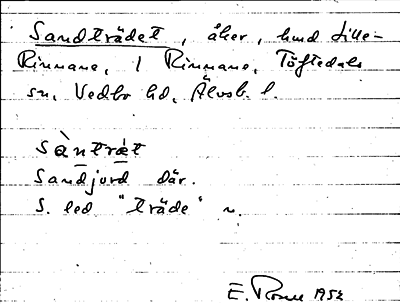 Sandträdet, åker, hmd Lille-
Rinnane, 1 Rinnane, Töftedals
sn, Vedbo hd, Älvsb. l.
sàntrǽt
Sandjord där.
S. led "träde" n.
E. Rosell 1952